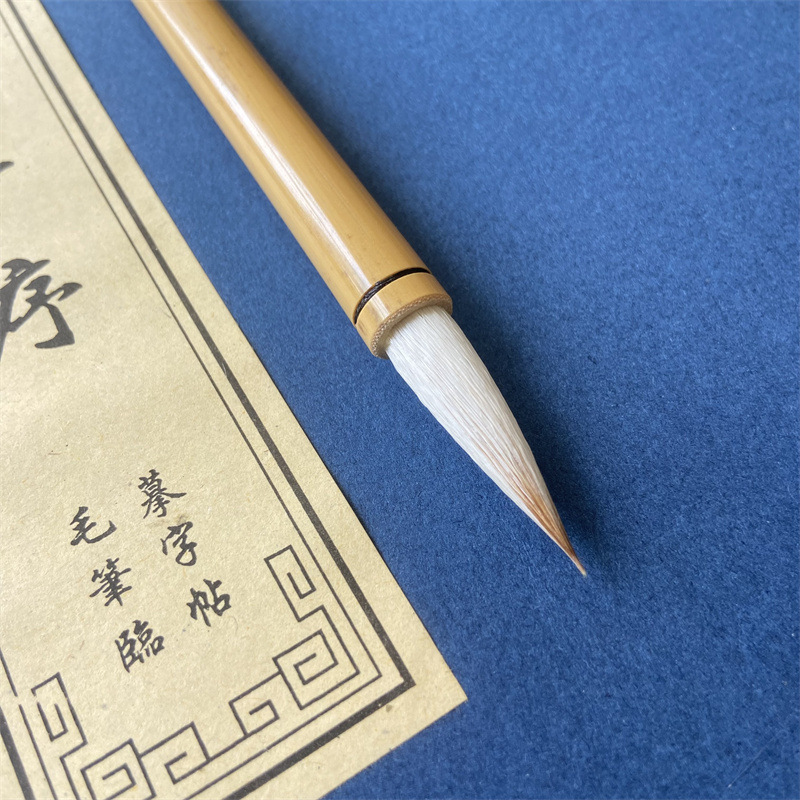 序
毛筆臨
摹字帖